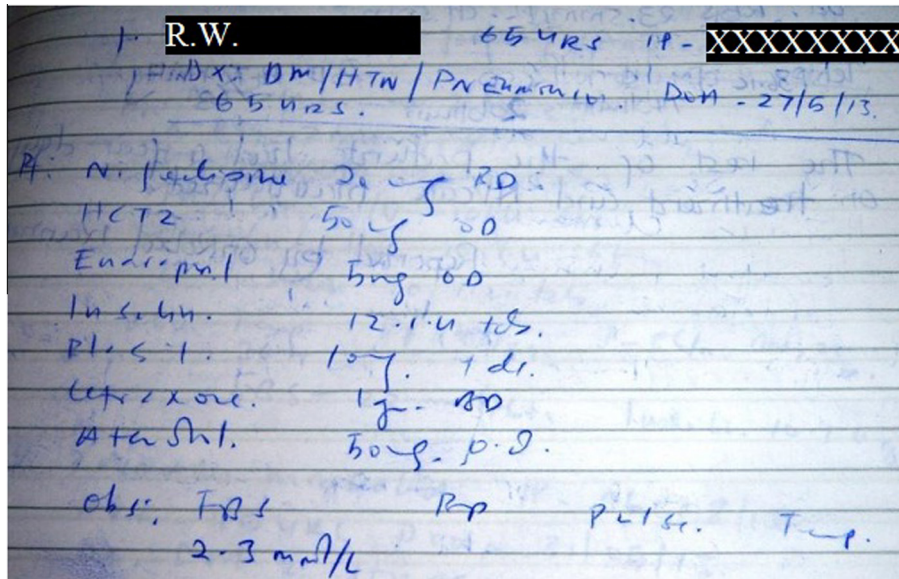 1. R.W. 65 YRS IP - XXXXXXXX
DX: DM/HTN/PNEumonia DOA - 27/5/13.
65 YRS.
Rx: Nifedipine 20mg BD
HCTZ 50mg OD
Enarapril 5mg OD
Insulin. 12.i.u tds.
Plasil. 10mg. tds.
Cefriaxone. 1gm. BD
Atenolol. 50mg. O.D.
Obs: FBS BP Pulse. Temp.
2.3 mmol/L